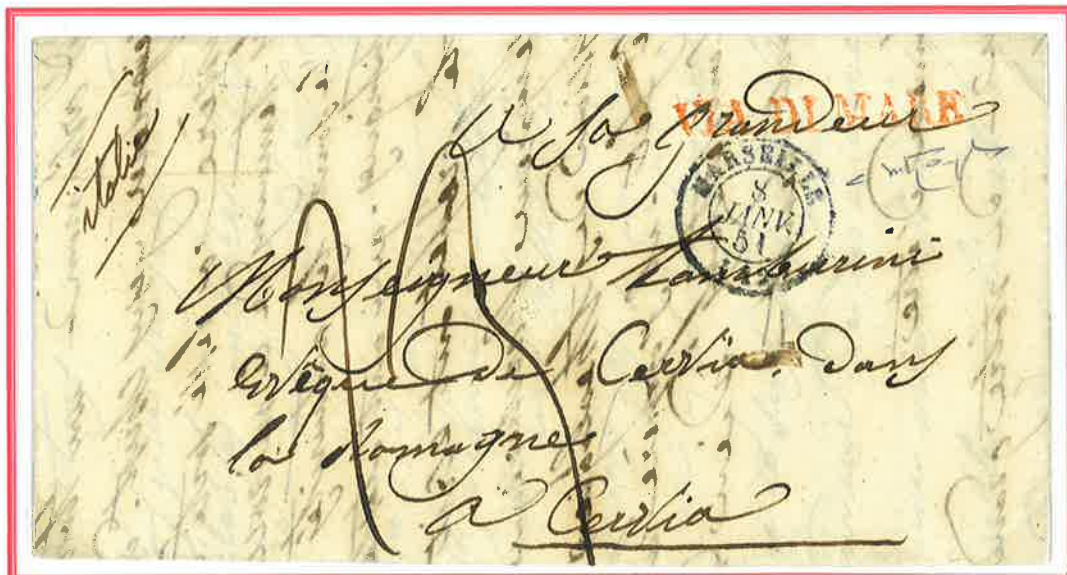 italie
VIA DI MARE
à Sa Grandeur
MARSEILLE
8
JANV.
51
Monseigneur
Evêque de Cervia. Dans
la Romagne
à Cervia